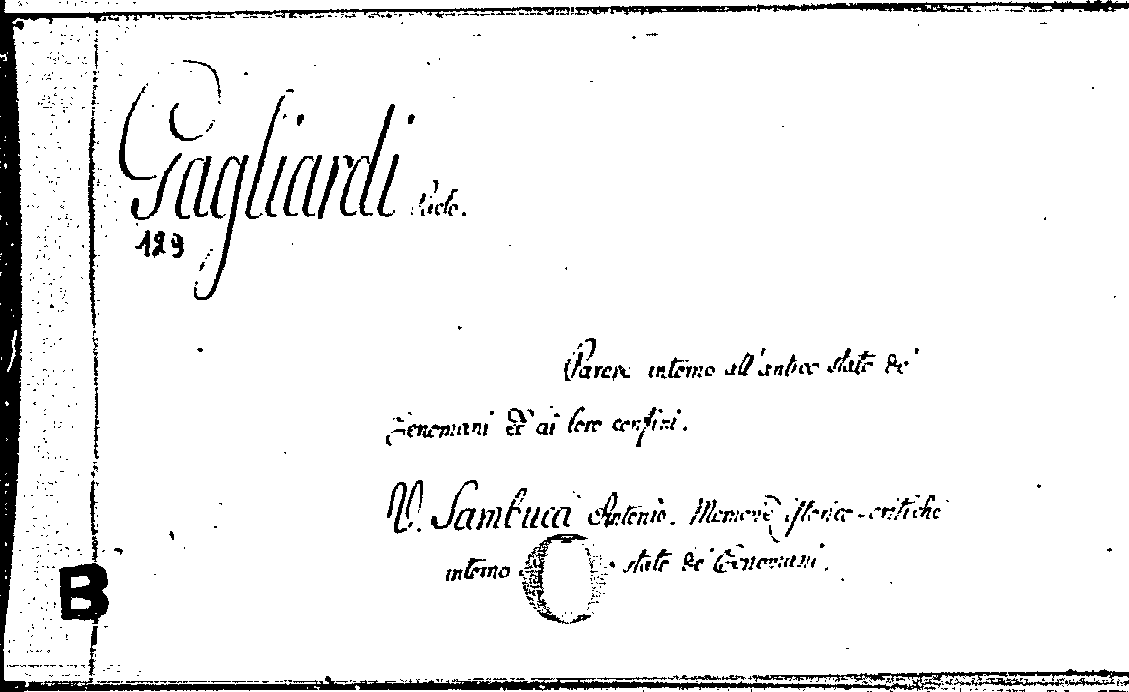 Gagliardi Paolo.
129
Parere intorno all'antico stato de'
Cenomani ed ai loro confini.
V. Sambuca Antonio. Memorie istorico-critiche
intorno stato de' Cenomani.
B